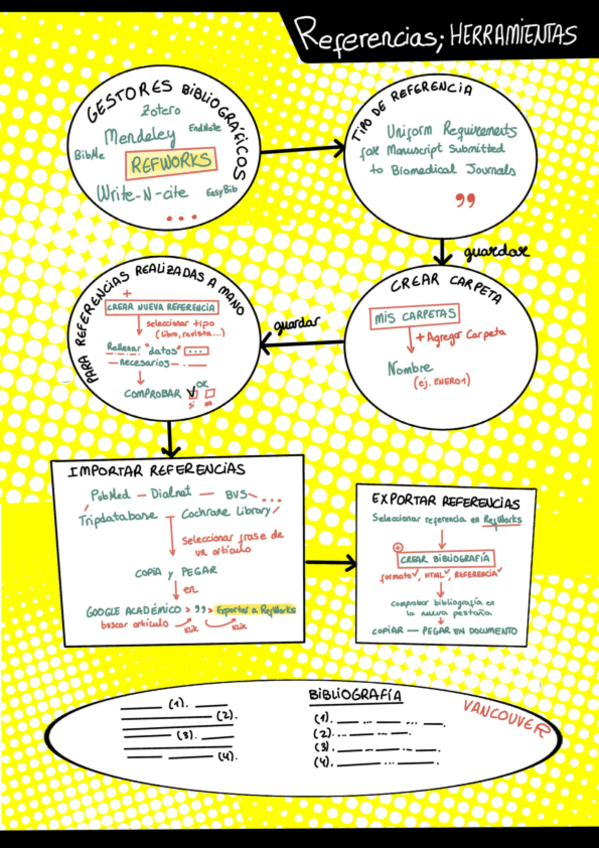 Referencias; HERRAMIENTAS
GESTORES BIBLIOGRÁFICOS
Zotero
Mendeley
EndNote
BibMe
REFWORKS
Write-N-cite
EasyBib
...
TIPO DE REFERENCIA
Uniform Requirements
for Manuscript Submitted
to Biomedical Journals
"
guardar
CREAR CARPETA
MIS CARPETAS
+ Agregar Carpeta
Nombre
(ej. ENERO1)
guardar
PARA REFERENCIAS REALIZADAS A MANO
+
CREAR NUEVA REFERENCIA
seleccionar tipo
(libro, revista...)
Rellenar "datos" ...
necesarios
COMPROBAR OK
si no
IMPORTAR REFERENCIAS
PubMed — Dialnet — BVS- ...
Tripdatabase Cochrane Library
seleccionar frase de
un artículo
COPIA y PEGAR
en
GOOGLE ACADÉMICO > " > Exportar a RefWorks
buscar artículo klik klik
EXPORTAR REFERENCIAS
Seleccionar referencia en RefWorks
+
CREAR BIBLIOGRAFÍA
formato, HTML, REFERENCIA
comprobar bibliografía en
la nueva pestaña
COPIAR — PEGAR EN DOCUMENTO
(1).
(2).
(3).
(4).
BIBLIOGRAFÍA
(1).
(2).
(3).
(4).
VANCOUVER